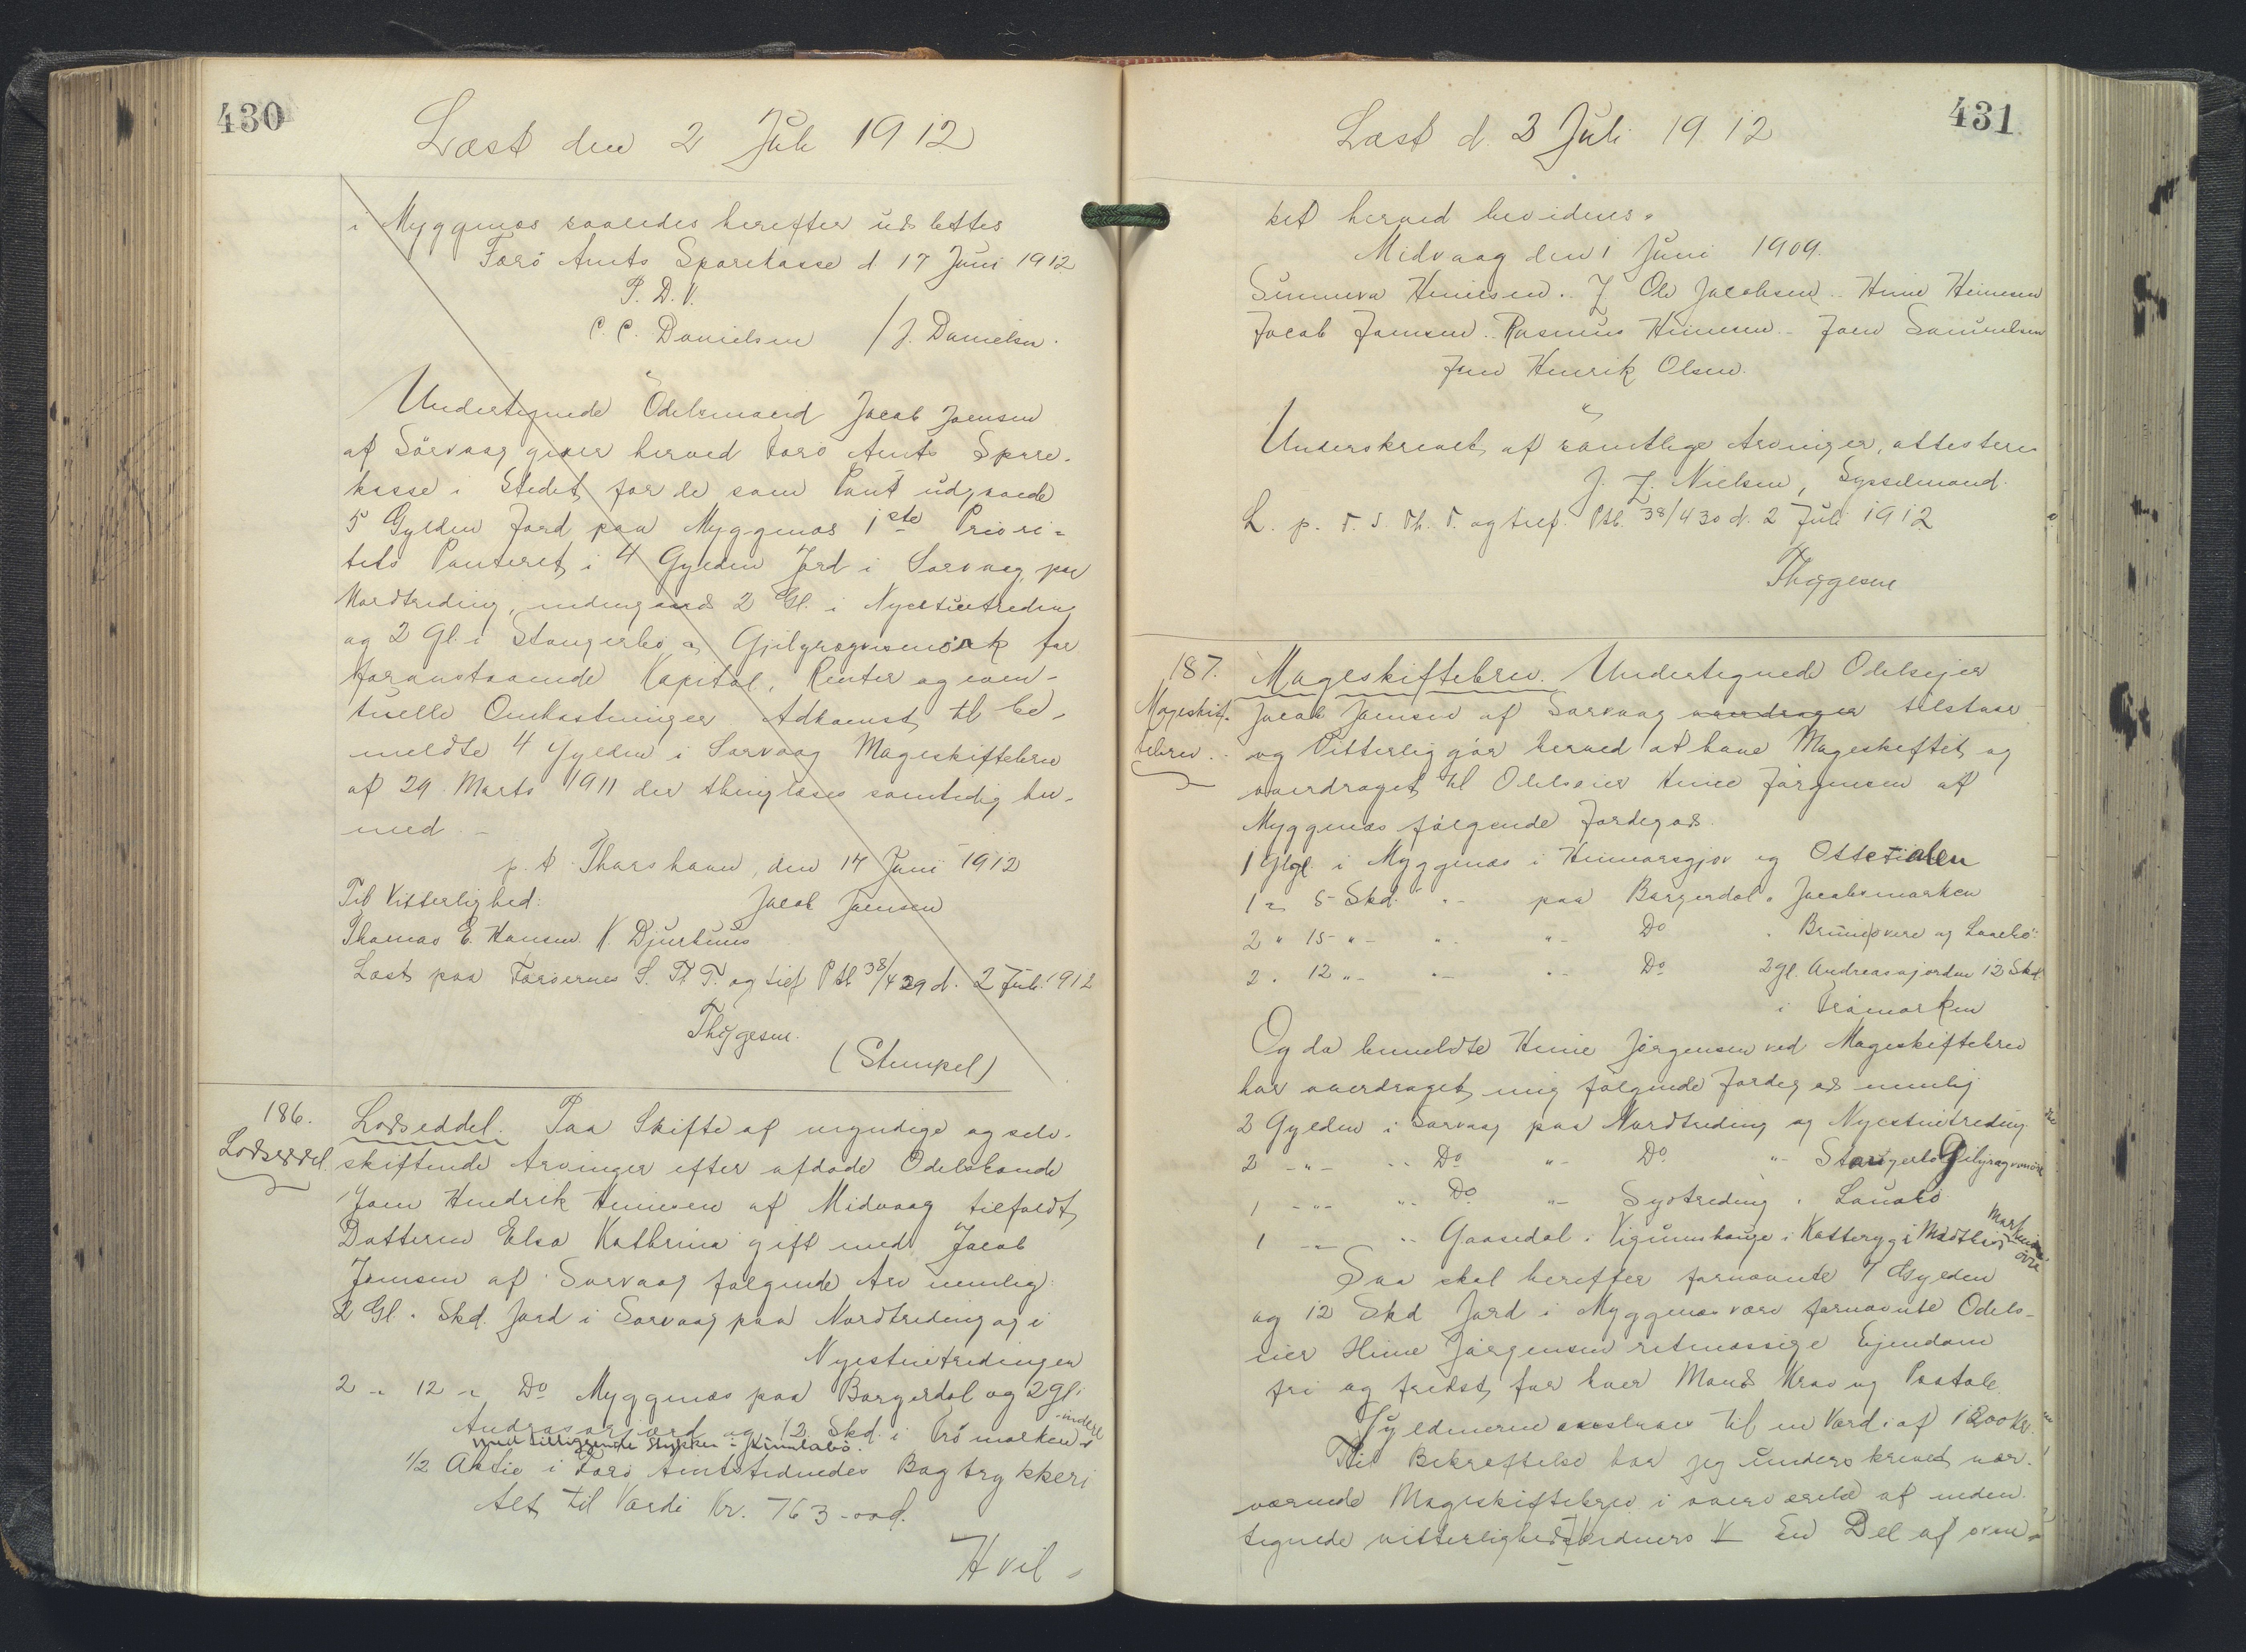 430
Læst den 2 Juli 1912
i Myggenæs saaledes herefter udslettes
Færö Amts Sparekasse d 17 Juni 1912
P. D. V.
C. C. Danielsen / J. Danielsen.
Undertegnede Odelsmand Jacob Joensen
af Sörvaag giver herved Færö Amts Spare-
kasse i Stedet for de som Pant udgaaede
5 Gylden Jord paa Myggenæs 1ste Priori-
tets Panteret i 4 Gylden Jord i Sørvaag, paa
Nordtreding, 2 Gl. i Nyestuetreding
og 2 Gl. i Stangerbö for
foranstaaende Kapital, Renter og even-
tuelle Omkostninger. Adkomst til be-
meldte 4 Gylden i Sørvaag Mageskiftebrev
af 29 Marts 1911 der thinglæses samtidig her-
med. -
p. t. Thorshavn, den 14 Juni 1912
Til Vitterlighed: Jacob Joensen
Thomas E. Hansen. K. Djurhuus
Læst paa Færøernes S. Th. T. og tilf Ptb 38/429 d. 2 Juli 1912
Thygesen.
(Stempel)
186.
Lodseddel
Lodseddel. Paa Skifte af myndige og selv-
skiftende Arvinger efter afdøde Odelsbonde
Joen Hendrik Heinesen af Midvaag tilfaldt
Datteren Elsa Kathrina gift med Jacob
Joensen af Sørvaag følgende Arv nemlig:
2 Gl. " Skd. Jord i Sørvaag paa Nordtreding og i
Nyestuetredingen
2 " 12 " Do Myggenæs paa Borgerdal og 2 Gl i
og 12 Skd. i Trömarken
med tilliggende Stykker i
1/2 Aktie i Færø Amtstidendes Bogtrykkeri
Alt til Værdi Kr. 763
Hvil-
431
Læst d. 2 Juli 1912
ket herved bevidnes.
Midvaag den 1 Juni 1909.
Sunneva Heinesen. J Ole Jacobsen. Heine Heinesen
Jacob Joensen. Rasmus Heinesen. Joen Samuelsen
Joen Henrik Olsen.
Underskrevet af samtlige Arvinger, attesteres
J. Nielsen, Sysselmand.
L. p. F. S. Th. T. og tilf. Ptb. 38/430 d. 2 Juli 1912
Thygesen
187.
Mageskif-
tebrev.
Mageskiftebrev. Undertegnede Odelsejer
Jacob Joensen af Sørvaag overdrager tilstaar
og Vitterliggör herved at have Mageskiftet og
overdraget til Odelseier Heine Jörgensen af
Myggenæs følgende Jordegods.
1 Gl. i Myggenæs i og
1 " 5 Skd. " - paa Borgerdal " Jacobsmarken
2 " 15 " - " - " - Do " og
2 " 12 " - " - " - Do 2 Gl. 12 Skd
i Trömarken
Og da bemeldte Heine Jörgensen ved Mageskiftebrev
har overdraget mig følgende Jordegods nemlig
2 Gylden i Sørvaag paa Nordtreding og Nyestuetreding
2 - " - " - Do " - Do " - Stangerbö
1 - " - " - Do " - Systreding
1 - " - " - Gaasedal i
Saa skal herefter fornævnte 7 Gylden
og 12 Skd Jord i Myggenæs være fornævnte Odels-
eier Heine Jörgensen retmæssige Ejendom
fri og frelst for hver Mands Krav og Paatale.
Gyldenerne ansættes til en Værdi af 1200 Kr.
Til Bekræftelse har jeg underskrevet nær-
værende Mageskiftebrev i overværelse af neden-
tegnede vitterlighedsvidner En Del af oven-